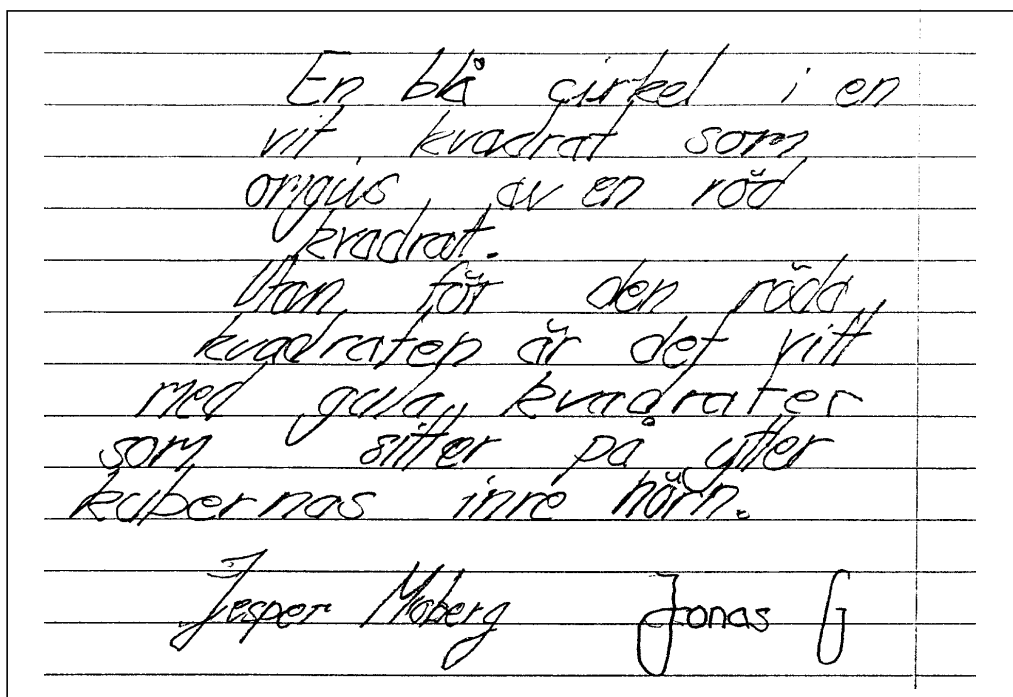 En blå cirkel i en
vit kvadrat som
omgus av en röd
kvadrat.
Utan för den röda
kvadraten är det vitt
med gula kvadrater
som sitter på ytter
kubernas inre hörn.
Jesper Moberg Jonas G